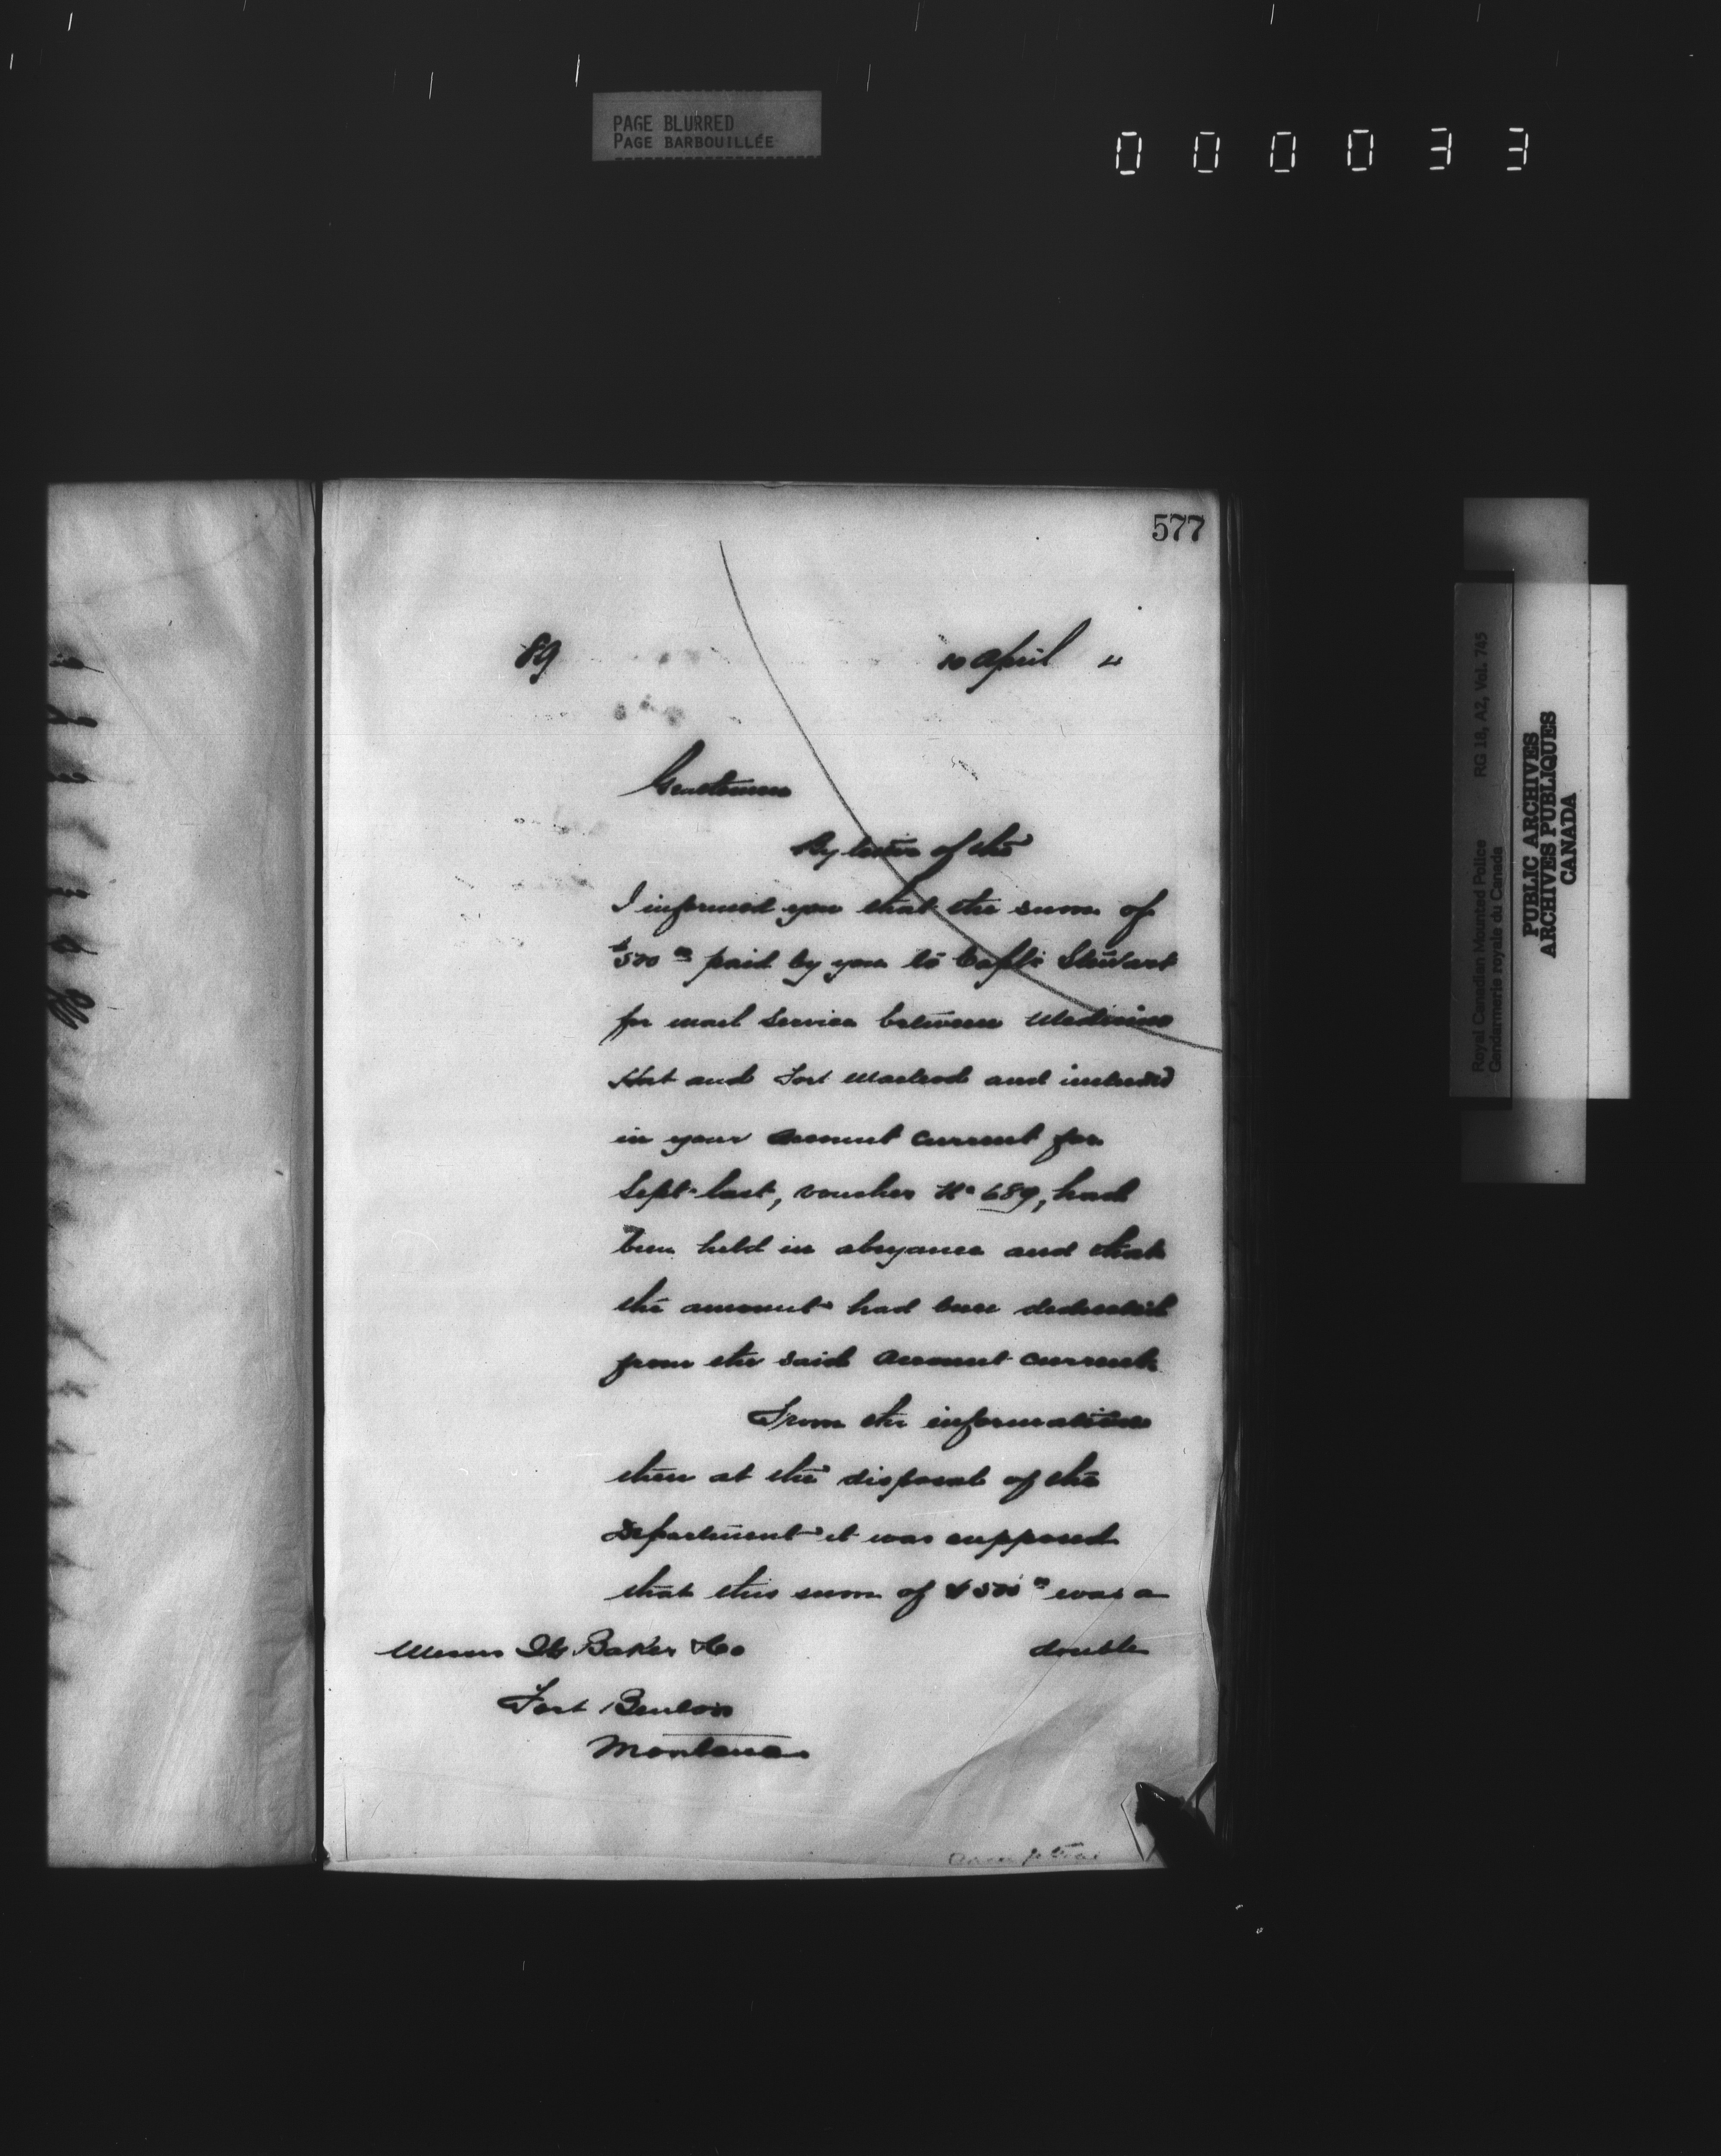 PAGE BLURRED
PAGE BARBOUILLÉE
000033
577
89
10 April 4
Gentlemen
By letter of the
I informed you that the sum of
$500 00 paid by you to Capt. Stewart
for mail service between Medicine
Hat and Fort Macleod and included
in your account current for
Sept. last, voucher No 689, had
been held in abeyance and that
the amount had been deducted
from the said account current.
From the information
then at the disposal of the
Department it was supposed
that this sum of $500 00 was a
double
Messrs I G Baker & Co
Fort Benton
Montana
Royal Canadian Mounted Police RG 18, A2, Vol. 745
Gendarmerie royale du Canada
PUBLIC ARCHIVES
ARCHIVES PUBLIQUES
CANADA